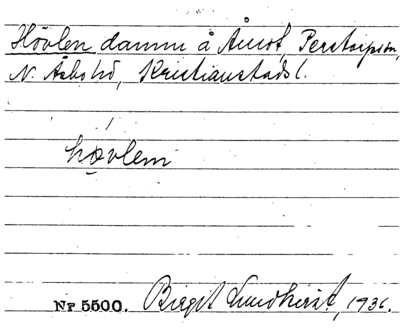 Hövlen damm å Åmot, Perstorpssn,
N. Åsbo hd, Kristianstads l.
hævlem
Nr 5500. Birgit Lundkvist, 1936.